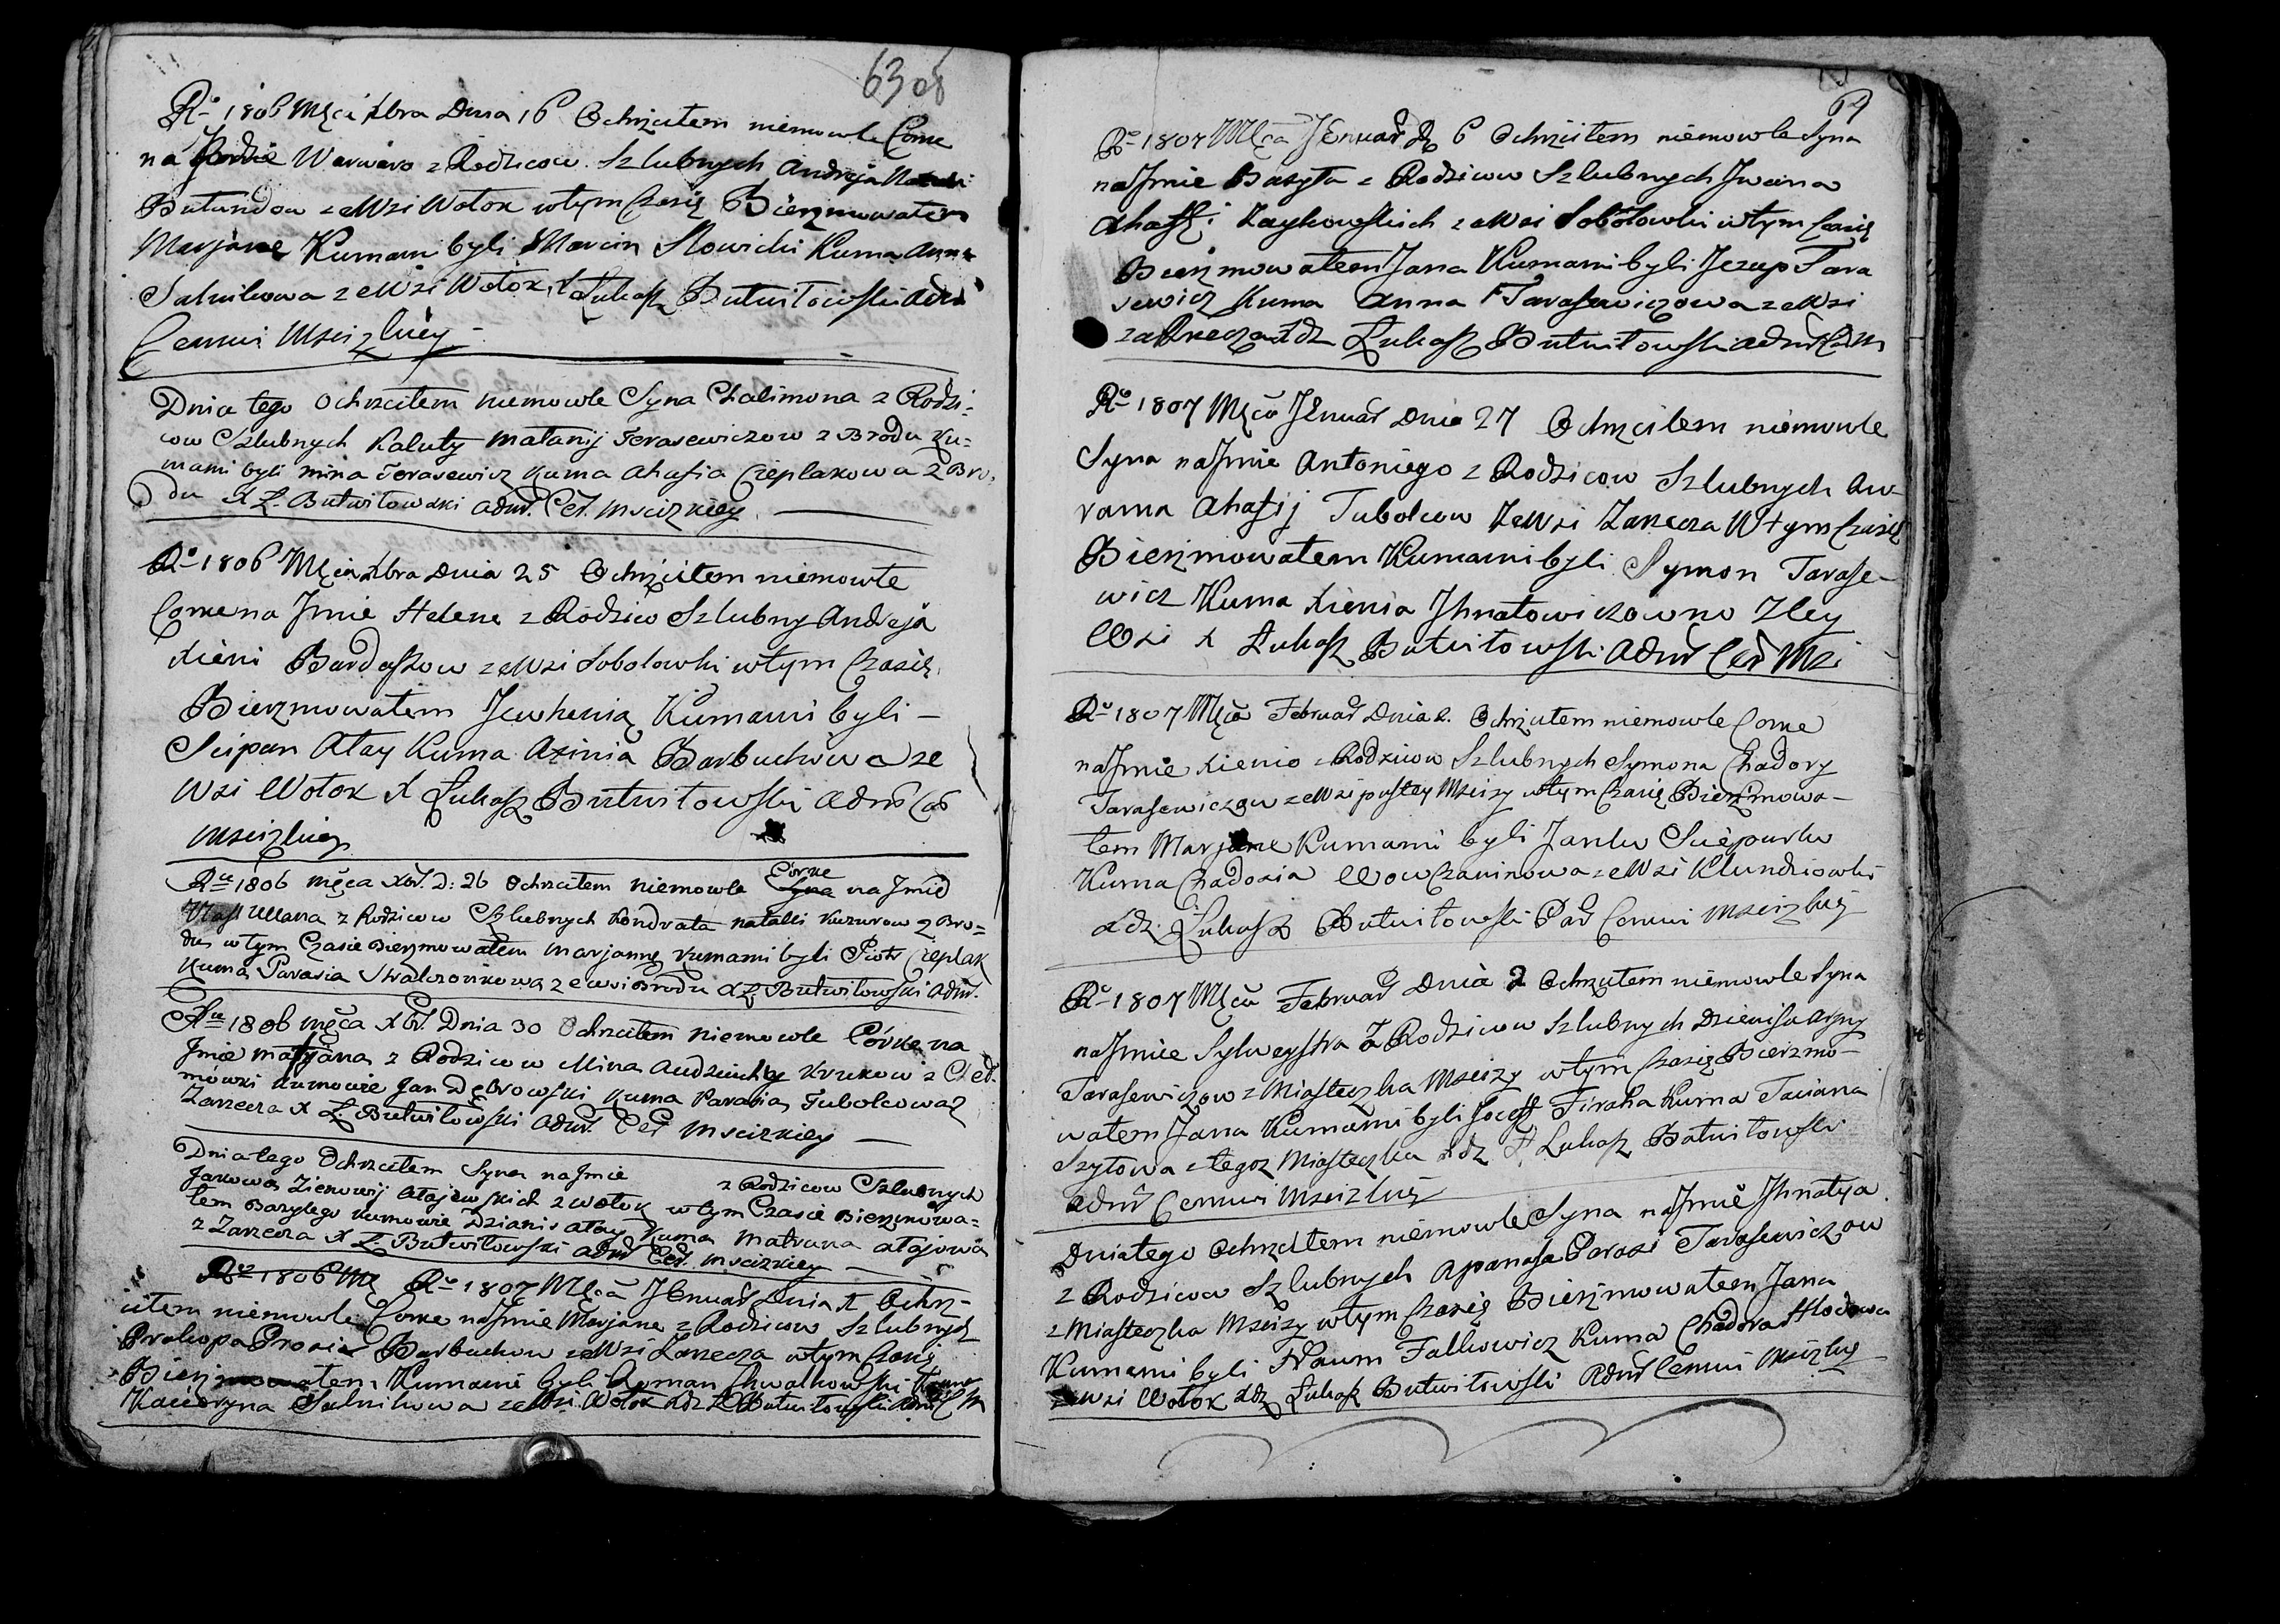 63 об
Rº 1806 Mca Xbra Dnia 16 Ochrzciłem niemowle Corke
na Jmie Warwaro z Rodzicow Szlubnych Andreja
Butundow ze Wsi Wołok wtym Czasię Bierzmowałem
Marjąne Kumami byli Marcin Nowicki Kuma Anna
Salnikowa ze Wsi Wołok X Łukasz Butwiłowski Adm
Cerkwi Msciżkiey
Dnia tego Ochrzciłem niemowle Syna Chalimona z Rodzi-
cow Szlubnych Kaluty Matanij Tarasewiczow z Brodu Ku=
mami byli Mina Tarasewicz Kuma Ahafia Cieplakowa z Bro,
du X Ł. Butwiłowski Adm. Cer. Msciżkiey
Rº 1806 Mca Xbra Dnia 25 Ochrzciłem niemowle
Corke na Jmie Helene z Rodzico Szlubny Andreja
Xieni Bardaszow ze Wsi Sobolowki wtym Czasię
Bierzmowałem Jewhenią Kumami byli –
Sciepan Atay Kuma Axinia Barbuchowa ze
Wsi Wołok X Łukasz Butwiłowski Adm Cer
Msciżkiey
Rku 1806 męca Xbr. D: 26 Ochrzciłem niemowle Syna Córke na Jmie
Ullana z Rodzicow Szlubnych Kondrata Natalli Kuzurow z Bro=
du w tym Czasie Bierzmowałem Marjannę Kumami byli Piotr Cieplak
Kuma Parasia Chwalczonkowa ze wsi Brodu X Ł. Butwiłowski Adm.
Rku 1806 męca Xbr. Dnia 30 Ochrzciłem Niemowle Córke na
Jmie Maryana z Rodzicow Mina Audziuchy Krukow z
mówki Kumowie Jan Dąbrowski Kuma Parasia Tubolcowa z
Zarecza X Ł. Butwiłowski Adm. Cer Msciżkiey
Dnia tego Ochrzciłem Syna na Jmie z Rodzicow Szlubnych
Jakowa Zienowij Atajewskich z Wołok w tym Czasie Bierzmowa=
łem Bazylego Kumowie Dzianis Atay Kuma Matruna Atajowa
z Zarecza X Ł. Butwiłowski Adm Cer. Msciżkiey
Rº 1806 Mę Rº 1807 Męca JEnuar Dnia X Ochrz-
ciłem niemowle Corke na Jmie Marjąne z Rodzicow Szlubnych
Prokopa Prosia Barbuchow ze Wsi Zarecza wtym Czasię
Bierzmowałem Kumami byli Roman Chwalkowski Kuma
Kacieryna Salnikowa ze Wsi Wołok Xdz Ł Butwiłowski Adm C M
64
Rº 1807 Męca JEnuar D 6 Ochrzciłem niemowle Syna
na Jmie Bazyla z Rodzicow Szlubnych Jwana
Ahafii Zaykowskich ze Wsi Sobolowki wtym Czasię
Bierzmowałem Jana Kumami byli Jezup Tara
sewicz Kuma Anna Tarasewiczowa ze Wsi
Zarzecza Xdz Łukasz Butwiłowski Adm Cer M
Rº 1807 Męca JEnuar Dnia 27 Ochrzciłem niemowle
Syna na Jmie Antoniego z Rodzicow Szlubnych Aw-
rama Ahafij Tubolcow Ze Wsi Zarecza Wtym Czasię
Bierzmowałem Kumami byli Symon Tarase-
wicz Kuma Xienia Jhnatowiczowno Zley
Wsi X Łukasz Butwiłowski Adm Cer Msi
Rº 1807 Męca Februar Dnia 2. Ochrzciłem niemowle Corke
na Jmie Xienio z Rodzicow Szlubnych Symona Chadory
Tarasewiczow ze Wsi pustey Mscizy wtym Czasię Bierzmowa-
łem Marjąne Kumami byli Janku Sciepurku
Kuma Chadosia Wowczaninowa ze Wsi Klundziowki
Xdz. Łukasz Butwiłowski Par Cerkwi Msciżkiey
Rº 1807 Męca Februar Dnia 2 Ochrzciłem niemowle Syna
na Jmie Sylweystra Z Rodzicow Szlubnych Dzienisa Aryny
Tarasewiczow z Miasteczka Mscizy wtym Czasię Bierzmo-
wałem Jana Kumami byli Jozeff Firaha Kuma Taciana
Szytowa z tegoz Miasteczka Xdz Łukasz Butwiłowski
Adm Cerkwi Msciżkiey
Dnia tego Ochrzciłem niemowle Syna na Jmie Jhnatya
z Rodzicow Szlubnych Apanasa Parasi Tarasewiczow
z Miasteczka Mscizy wtym Czasię Bierzmowałem Jana
Kumami byli Naum Falkowicz Kuma Chadora Hlodowa
ze Wsi Wołok Xdz Łukasz Butwiłowski Adm Cerkwi Msciżkiey